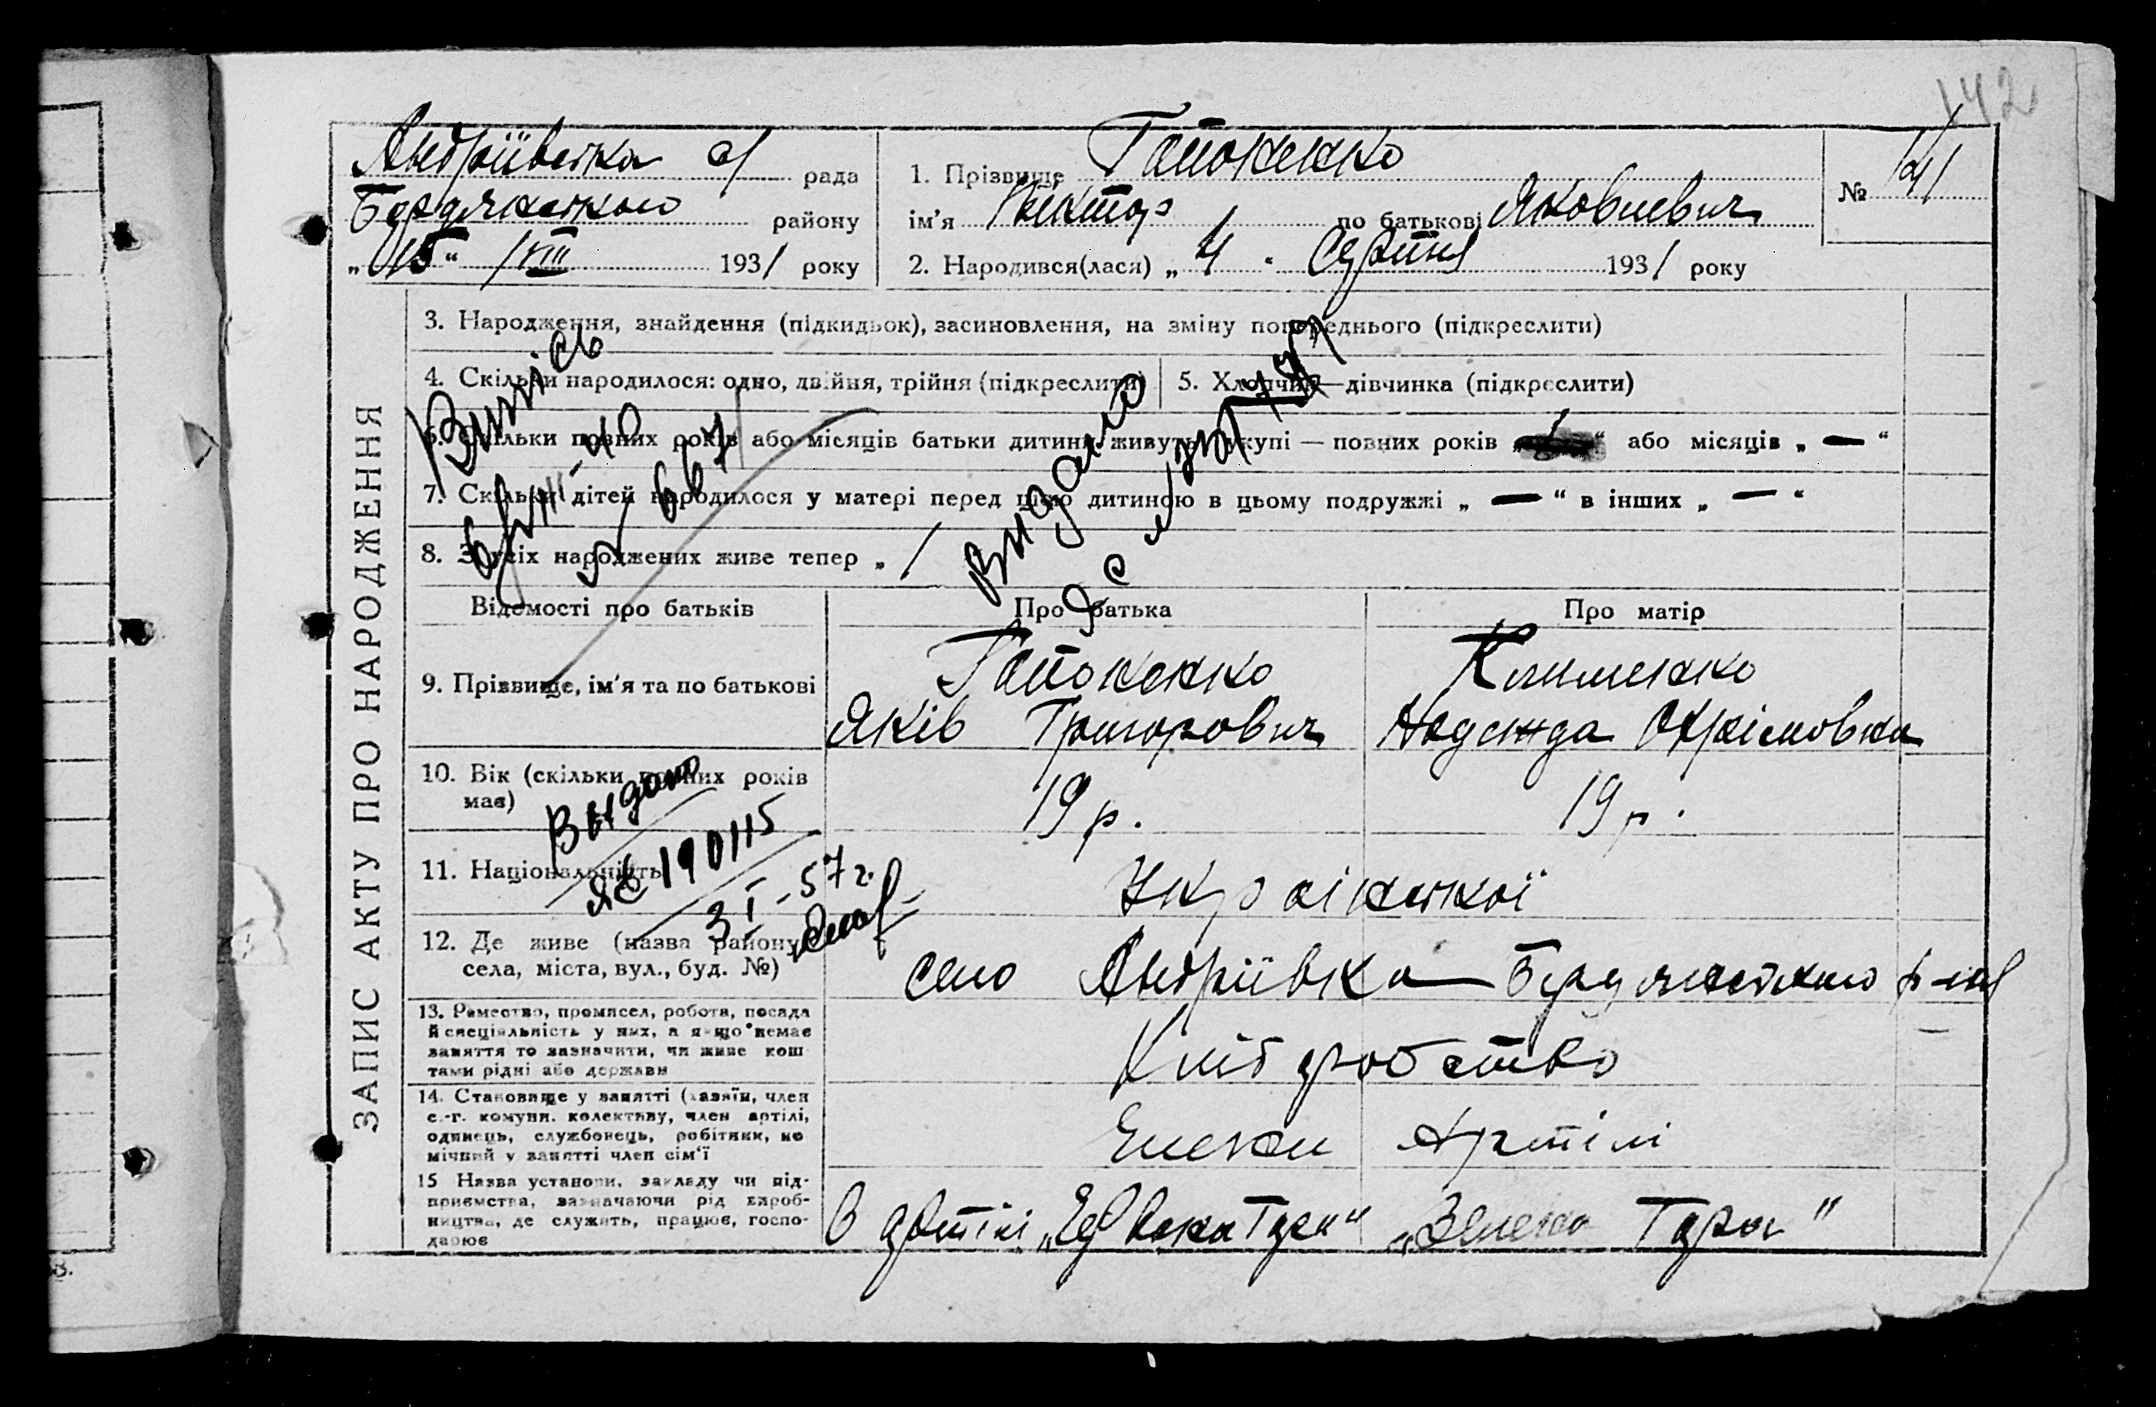 142
Андріївська с/ рада
Бердянського району
„15“ VIII 1931 року
1. Прізвище Гапоненко
ім'я Віктор по батькові Яковлевич
2. Народився(лася) „4“ Серпня 1931 року
№ 141
ЗАПИС АКТУ ПРО НАРОДЖЕННЯ
3. Народження, знайдення (підкидьок), засиновлення, на зміну попереднього (підкреслити)
4. Скільки народилося: одно, двійня, трійня (підкреслити)
5. Хлопчик—дівчинка (підкреслити)
6. Скільки повних років або місяців батьки дитини живуть вкупі — повних років „1“ або місяців „—“
7. Скільки дітей народилося у матері перед цією дитиною в цьому подружжі „—“ в інших „—“
8. З усіх народжених живе тепер „1
Видано
Відомості про батьків
Про батька
Про матір
9. Прізвище, ім'я та по батькові
Гапоненко
Яків Григорович
Клименко
Надежда Охрімовна
10. Вік (скільки повних років має)
19 р.
19 р.
Видано
ЯЄ 190115
3 I - 57 г.
11. Національність
Української
12. Де живе (назва району,
села, міста, вул., буд. №)
село Андріївка Бердянського р-ну
13. Ремество, промисел, робота, посада
й спеціяльність у них, а якщо немає
заняття то зазначити, чи живе кош
тами рідні або держави
Хліборобство
14. Становище у занятті (хазяїн, член
с.-г. комуни, колективу, член артілі,
одинець, службовець, робітник, по
мічний у занятті член сім'ї
Члени Артілі
15 Назва установи, закладу чи під-
приємства, зазначаючи рід вироб-
ництва, де служить, працює, госпо-
дарює
В артілі „Зелена Гора“ „Зелена Гора"